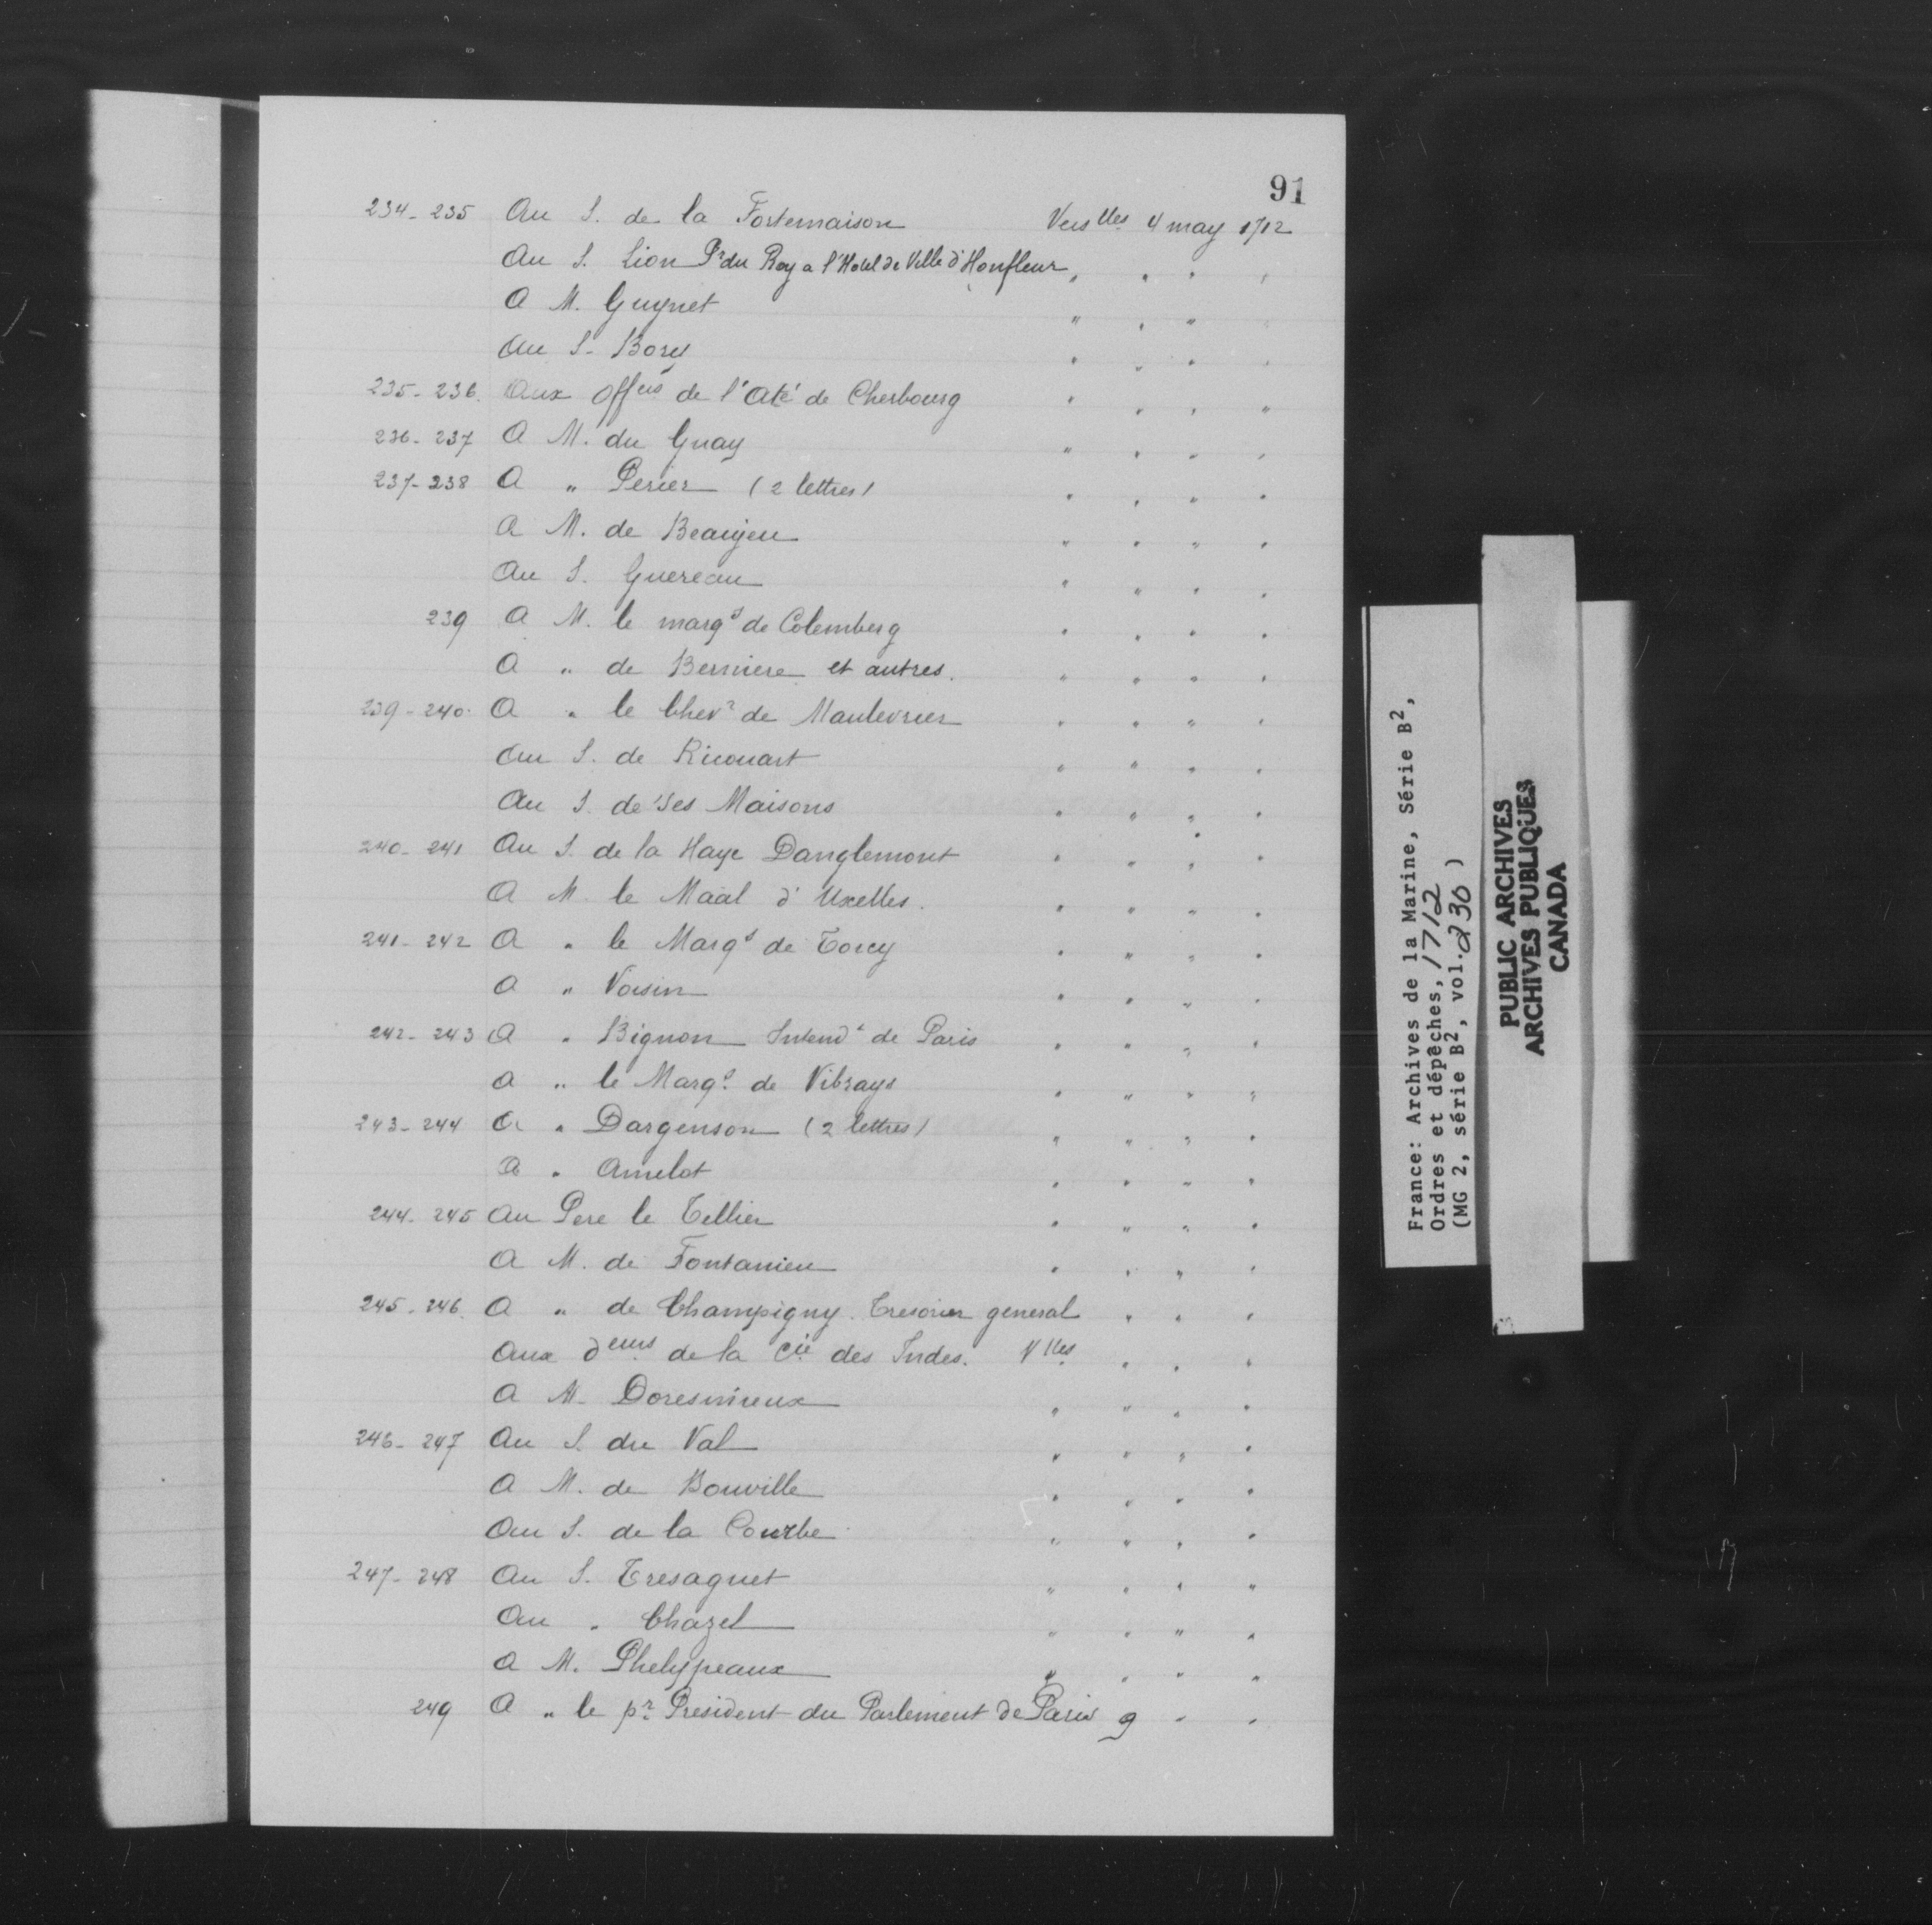 91
234-235 Au S. de la Fortemaison Verslles 4 may 1712
Au S. Lion Pr du Roy a l'Hotel de Ville d'Honfleur " " " "
A M. Guynet " " " "
Au S. Bory " " " "
235-236. Aux offers de l'Ate de Cherbourg " " " "
236-237 A M. du Guay " " " "
237-238 A " Perier (2 lettres) " " " "
A M. de Beaujeu " " " "
Au S. Guereau " " " "
239 A M. le margs de Colemberg " " " "
A " de Berniere et autres. " " " "
239-240. A " le Chevr de Maulevrier " " " "
Au S. de Ricouart " " " "
Au S. de ses Maisons " " " "
240-241 Au S. de la Haye Danglemont " " " "
A M. le Maal d'Uxelles. " " " "
241-242 A " le Margs de Torcy " " " "
A " Voisin " " " "
242-243 A " Bignon Intendt de Paris " " " "
A " le Margs. de Vibrays " " " "
243-244 A " Dargenson (2 lettres) " " " "
A " Amelot " " " "
244-245 Au Pere le Tellier " " " "
A M. de Fontanieu " " " "
245-246. A " de Champigny. Tresorier general " " "
Aux deurs de la Cie des Indes. Vlles " " "
A M. Doresmieux " " " "
246-247 Au S. du Val " " " "
A M. de Bouville " " " "
Au S. de la Courbe " " " "
247-248 Au S. Tresaguet " " " "
Au " Chazel " " " "
A M. Phelypeaux " " " "
249 A " le pr. President du Parlement de Paris 9 " "
France: Archives de la Marine, Série B2,
Ordres et dépêches, 1712
(MG 2, série B2, vol. 230)
PUBLIC ARCHIVES
ARCHIVES PUBLIQUES
CANADA